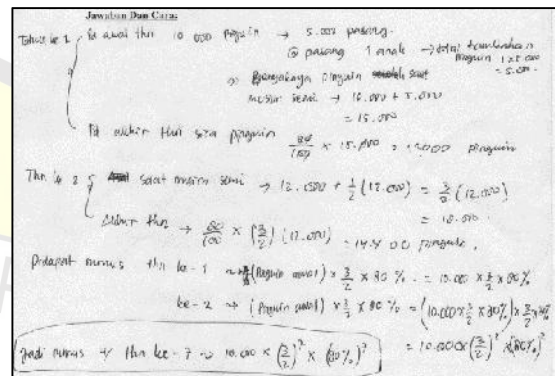 Jawaban Dan Cara:
Tahun ke 1 Pd awal thn 10 000 pinguin → 5.000 pasang.
@ pasang 1 anak → total tambahan pinguin 1 x 5.000 = 5.000.
Banyaknya pinguin saat
musim semi → 10.000 + 5.000
= 15.000
Pd akhir thn sisa pinguin 80/100 x 15.000 = 12000 pinguin
Thn ke 2 saat musim semi → 12.000 + 1/2 (12.000) = 3/2 (12.000)
= 18.000.
Akhir thn → 80/100 x (3/2) (12.000) = 14.400 pinguin.
Didapat rumus thn ke-1 → (Pinguin awal) x 3/2 x 80% = 10.000 x 3/2 x 80%
ke-2 → (Pinguin awal) x 3/2 x 80% = (10.000 x 3/2 x 80%) x 3/2 x 80%
= 10.000 x (3/2)² x (80%)²
Jadi rumus thn ke-7 → 10.000 x (3/2)⁷ x (80%)⁷